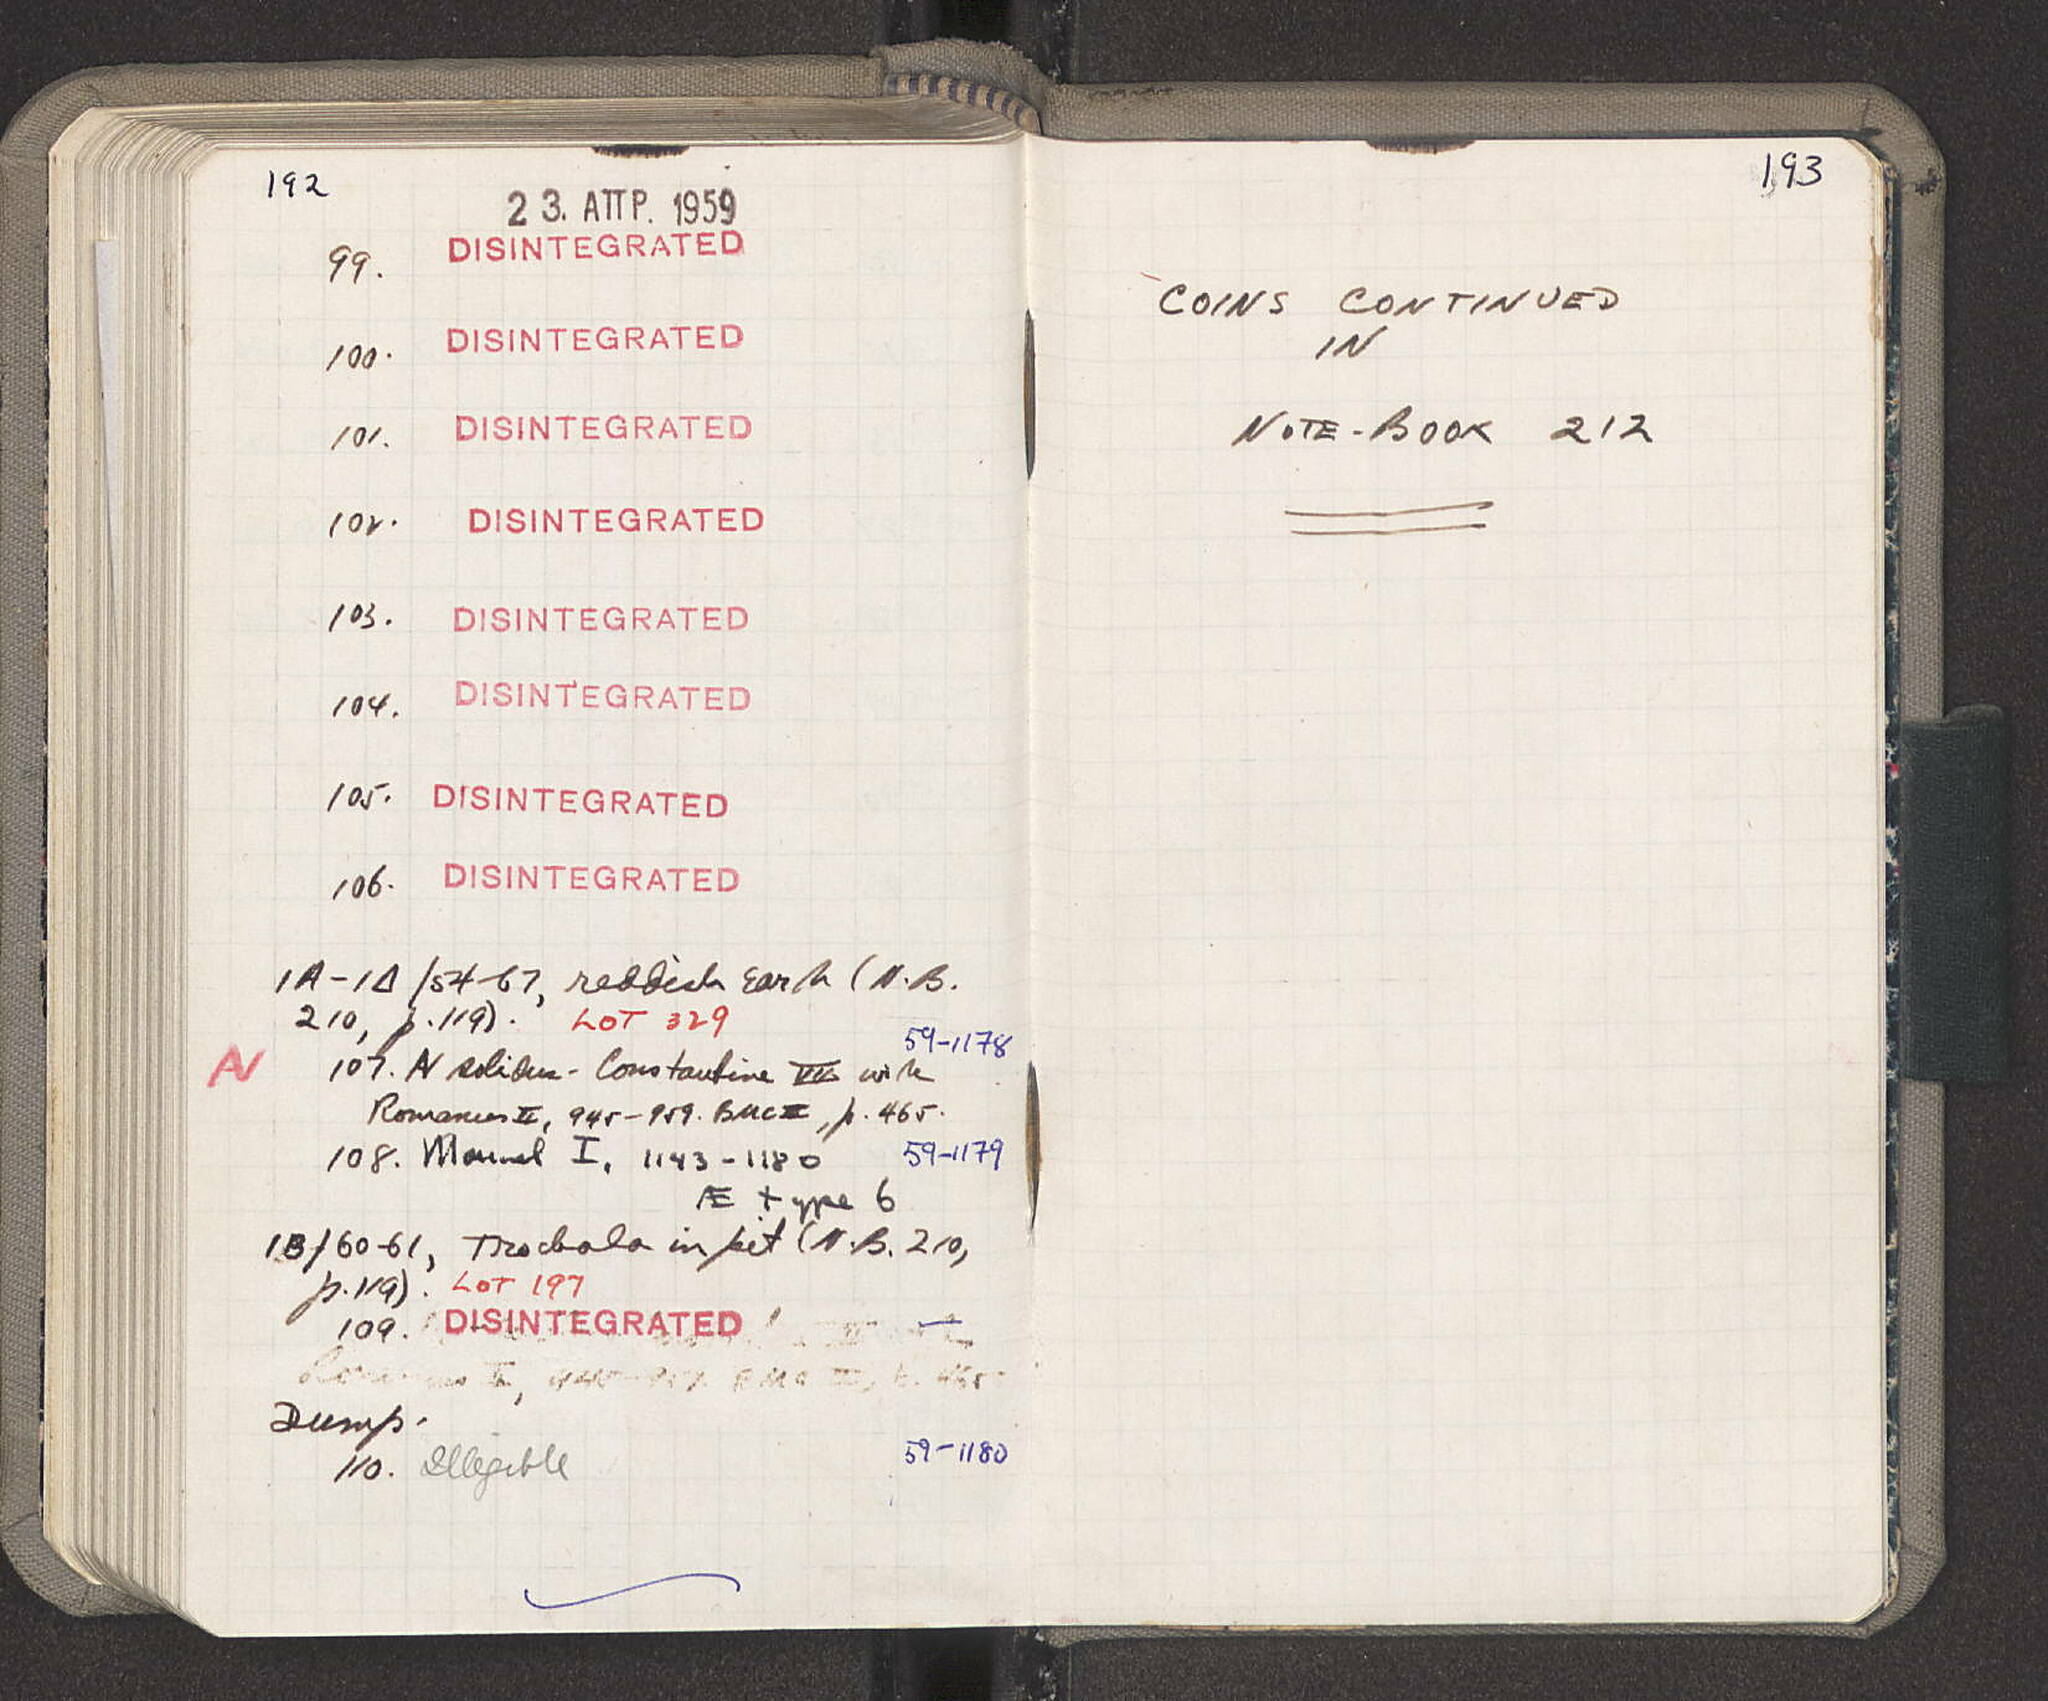 192
23. ΑΠΡ. 1959
99. DISINTEGRATED
100. DISINTEGRATED
101. DISINTEGRATED
102. DISINTEGRATED
103. DISINTEGRATED
104. DISINTEGRATED
105. DISINTEGRATED
106. DISINTEGRATED
1A-1Δ/54-67, reddish earth (N.B.
210, p.119). LOT 329
59-1178
N 107. N solidus - Constantine VII with
Romanus II, 945-959. BMC II, p. 465.
108. Manuel I, 1143-1180 59-1179
Æ type 6
1B/60-61, Trochala in pit (N.B. 210,
p.119). LOT 197
109. DISINTEGRATED —
Dump.
110. Illegible 59-1180
193
COINS CONTINUED
IN
NOTE-BOOK 212